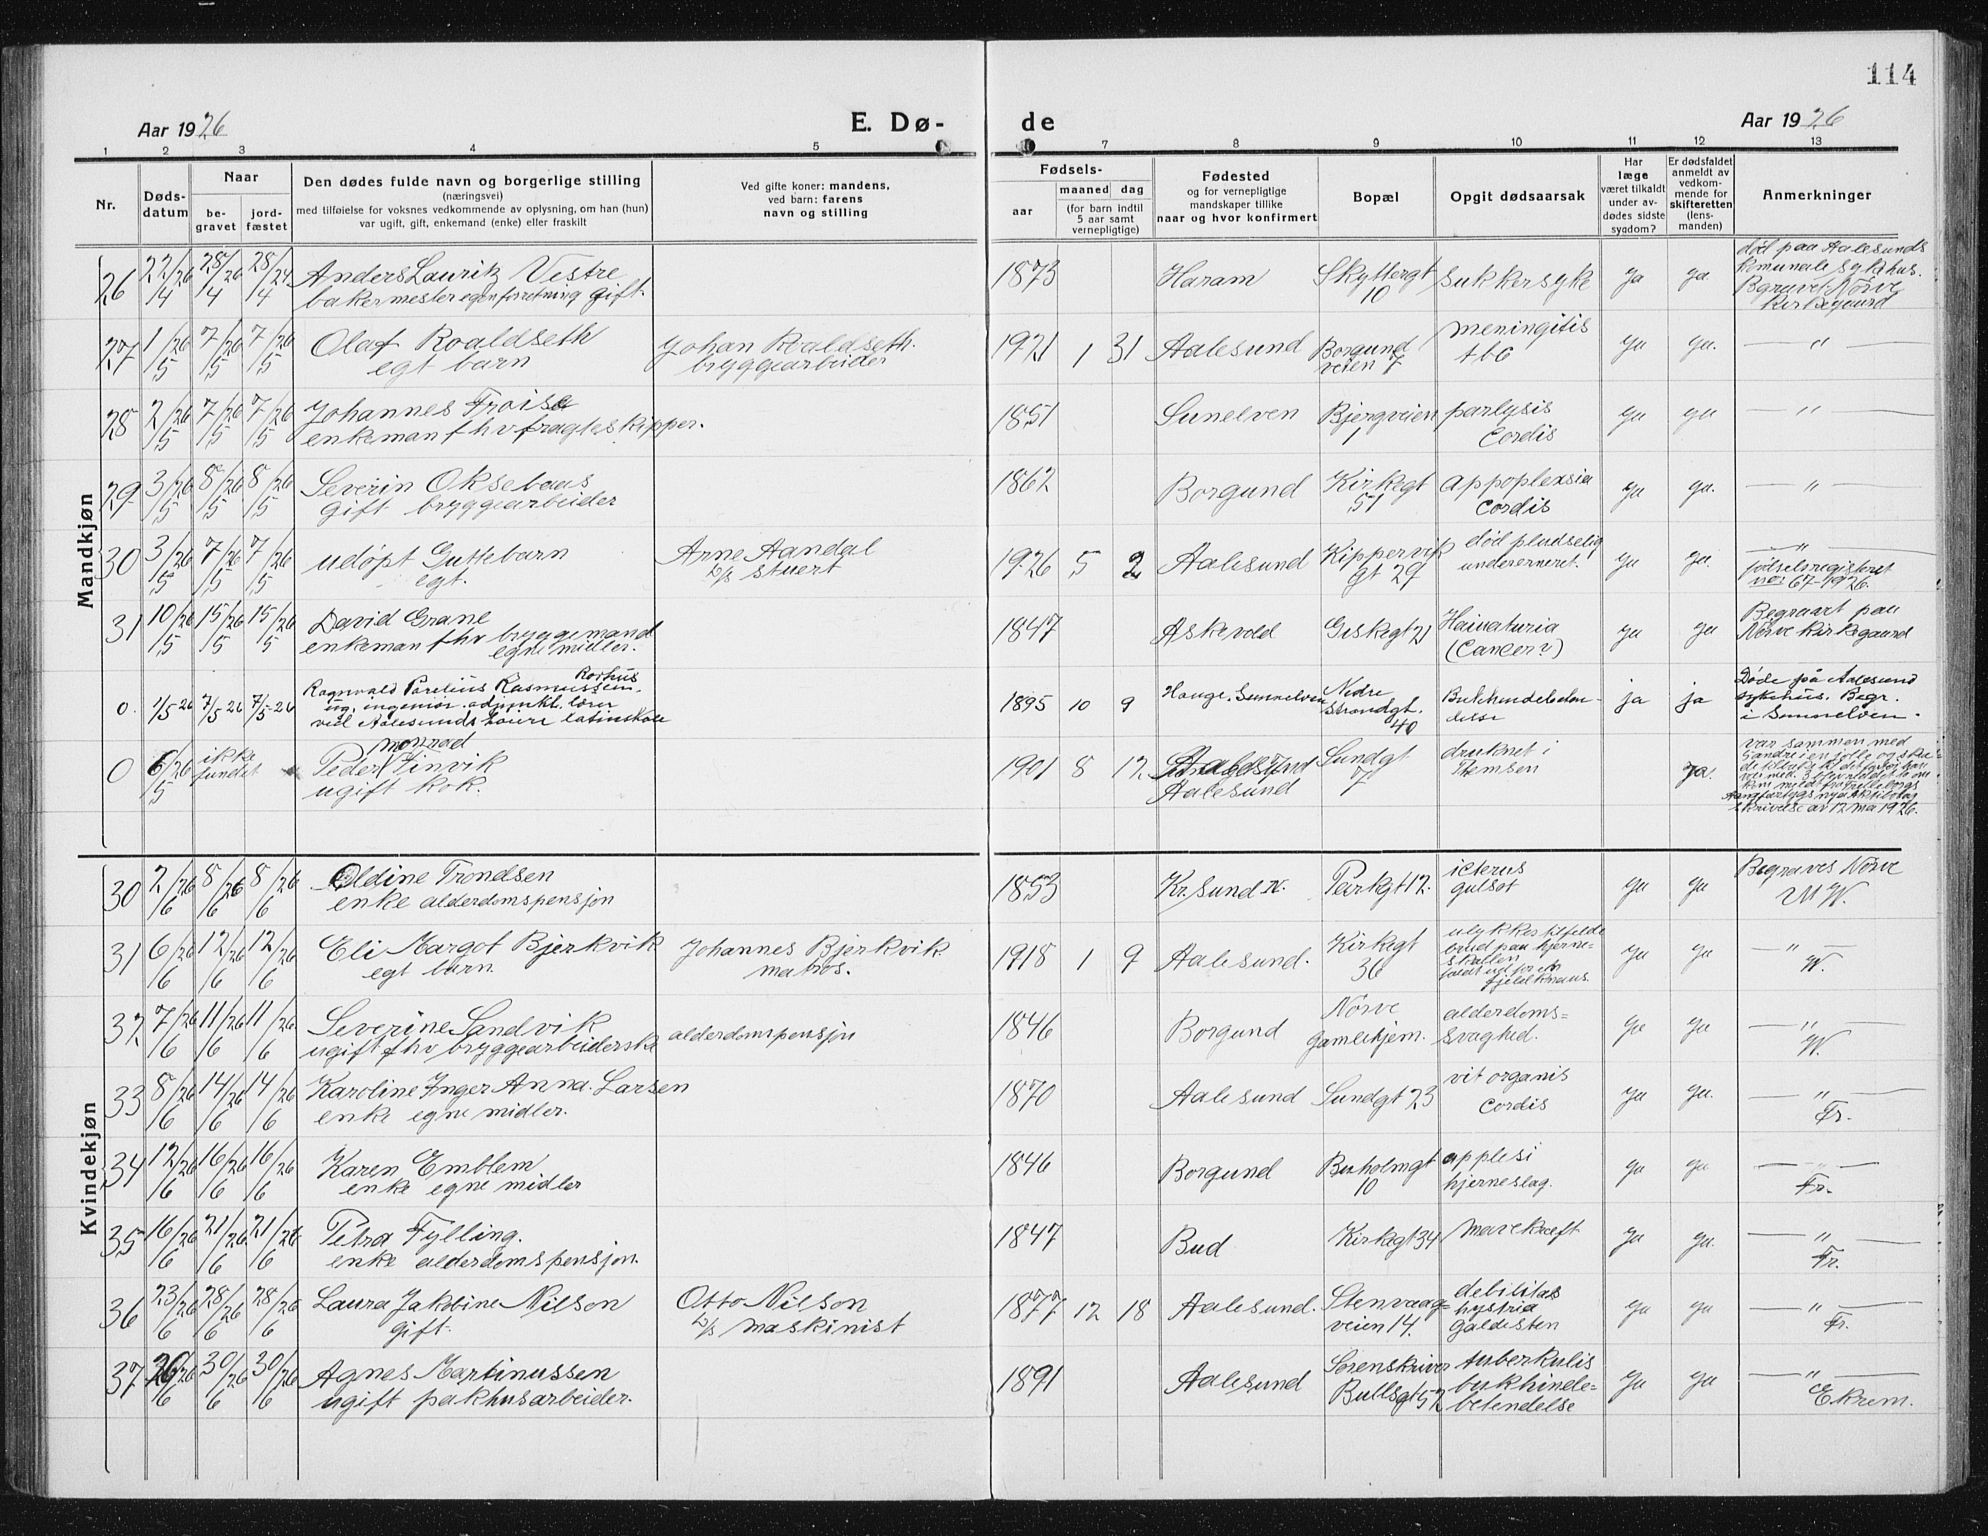 114
Aar 1926
E. Dø-
de
Aar 1926
1 2 3 4 5 7 8 9 10 11 12 13
Nr.
Døds-
datum
Naar
be-
gravet
jord-
fæstet
Den dødes fulde navn og borgerlige stilling
(næringsvei)
med tilføielse for voksnes vedkommende av oplysning, om han (hun)
var ugift, gift, enkemand (enke) eller fraskilt
Ved gifte koner: mandens,
ved barn: farens
navn og stilling
Fødsels-
aar
maaned dag
(for barn indtil
5 aar samt
vernepligtige)
Fødested
og for vernepligtige
mandskaper tillike
naar og hvor konfirmert
Bopæl
Opgit dødsaarsak
Har
læge
været tilkaldt
under av-
dødes sidste
sygdom?
Er dødsfaldet
anmeldt av
vedkom-
mende for
skifteretten
(lens-
manden)
Anmerkninger
Mandkjøn
26 22/4 26 28/4 26 28/4 24 Anders Lauritz Vestre 1873 Haram Skyttergt sukkersyke ja ja død paa Aalesunds
bakermester egen forretning gift. 10 komunale sykehus.
Begravet Nørve
Kirkegaard
27 1/5 26 7/5 26 7/5 26 Olaf Roaldseth Johan Roaldseth. 1921 1 31 Aalesund Borgund meningitis ja ja. — " —
egt barn bryggearbeider veien 7 tbc
28 2/5 26 7/5 26 7/5 26 Johannes Frøisa 1851 Sunelven Bjergveien parlysis ja ja — " —
enkeman fhv fragteskipper. 1 Cordis
29 3/5 26 8/5 26 8/5 26 Severin Oksebaas 1862 Borgund Kirkegt appoplexia ja ja. — " —
gift bryggearbeider 51 Cordis
30 3/5 26 7/5 26 7/5 26 udøpt Guttebarn Arne Aandal 1926 5 2 Aalesund Kippervik død pludselig ja ja. — " —
egt. D/S stuert gt 27 undererneret. fødselsregisteret
no 67-1926.
31 10/5 26 15/5 26 15/5 26 David Grane 1847 Askevold Giskegt 21 Haimaturia ja ja Begravet paa
enkeman fhv bryggemand (Cancer?) Nørve Kirkegaard
egne midler.
0. 1/5 26 7/5 26 7/5 26 Ragnvald Parelius Rasmussen Rørhus 1895 10 9 Hauge, Sunnelven Nedre Bukhindebeten- ja ja Døde på Aalesund
ug. ingeniør, adjunkt, lærer Strandgt. delse sykehus. Begr.
ved Aalesunds Latinskole 40 i Sunnelven.
0 6/5 26 ikke Peder Monrad Finvik 1901 8 12 Aalesund Sundgt druknet i ja. var sammen med
fundet ugift kok. Aalesund 7 Themsen
skrivelse av 12 mai 1926.
Kvindekjøn
30 2/6 26 8/6 26 8/6 26 Oldine Trondsen 1853 Kr. Sund N. Parkgt 12. icterus ja ja Begraves Nørve
enke alderdomspensjon gulsot W.
31 6/6 26 12/6 26 12/6 26 Eli Margot Bjerkvik Johannes Bjerkvik 1918 1 9 Aalesund. Kirkegt ulykkestilfelde ja ja — " —
egt barn matros. 36 brud paa hjerne- W.
skallen
faldt ud for en
fjeldknaus.
32 7/6 26 11/6 26 11/6 26 Severine Sandvik alderdomspensjon 1846 Borgund Nørve alderdoms= ja ja — " —
ugift fhv bryggearbeiderske gamlehjem. svaghed. W.
33 8/6 26 14/6 26 14/6 26 Karoline Inger Anna. Larsen 1870 Aalesund Sundgt 23 vit organis ja ja. — " —
enke egne midler. Cordis Fr.
34 12/6 26 16/6 26 16/6 26 Karen Emblem 1846 Borgund Buholmgt applesi ja ja — " —
enke egne midler 10 hjerneslag. Fr.
35 16/6 26 21/6 26 21/6 26 Petra Fylling. 1847 Bud Kirkegt 34 Mavekræft ja ja. — " —
enke alderdomspensjon. Fr.
36 23/6 26 28/6 26 28/6 26 Laura Jakobine Nilson Otto Nilson 1877 12 18 Aalesund. Stenvaag= debilitas ja ja — " —
gift. D/S maskinist veien 14. hystria Fr.
galdesten
37 26/6 26 30/6 26 30/6 26 Agnes Martinussen 1891 Aalesund Sorenskriver tuberkulis ja ja — " —
ugift pakhusarbeider. Bullsgt 52 bukhinde= Ekrem.
betendelse